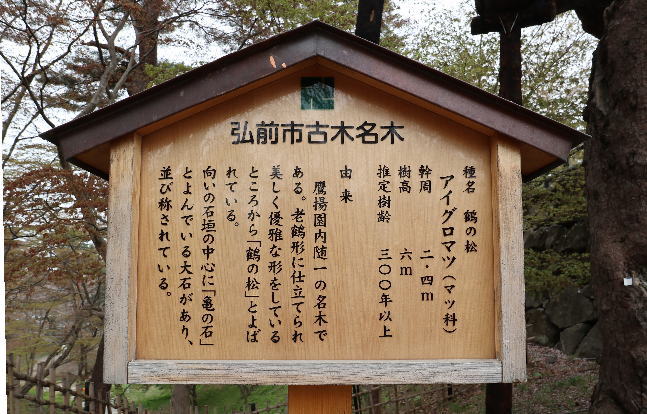 弘前市古木名木
種名 鶴の松
アイグロマツ(マツ科)
幹周 二・四m
樹高 六m
推定樹齢 三〇〇年以上
由来
鷹揚園内随一の名木で
ある。老鶴形に仕立てられ
美しく優雅な形をしている
ところから「鶴の松」とよば
れている。
向いの石垣の中心に「亀の石」
とよんでいる大石があり、
並び称されている。